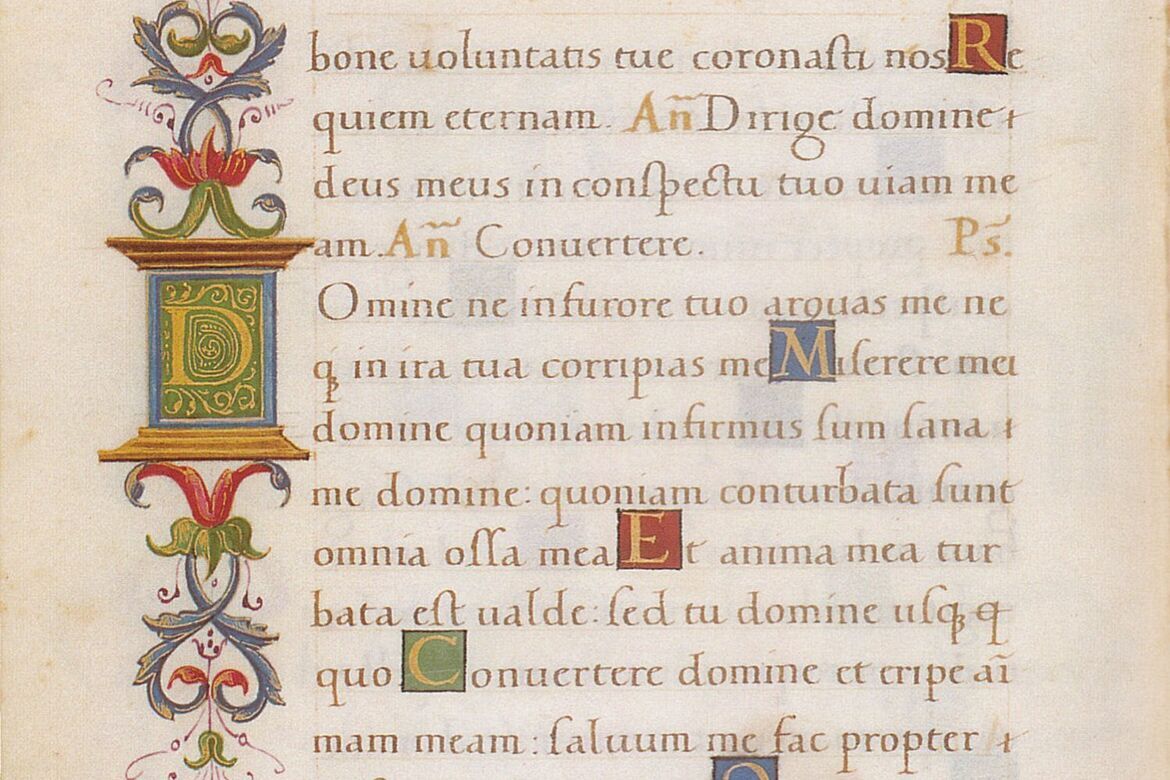 bone uoluntatis tue coronasti nos Re
quiem eternam. Añ Dirige domine
deus meus in conspectu tuo uiam me
am. Añ Conuertere. Ps.
DOmine ne in furore tuo arguas me ne
q̢ in ira tua corripias me Miserere mei
domine quoniam infirmus sum sana
me domine: quoniam conturbata sunt
omnia ossa mea Et anima mea tur
bata est ualde: sed tu domine usq̢ q
quo Conuertere domine et eripe aı̄
mam meam: saluum me fac propter